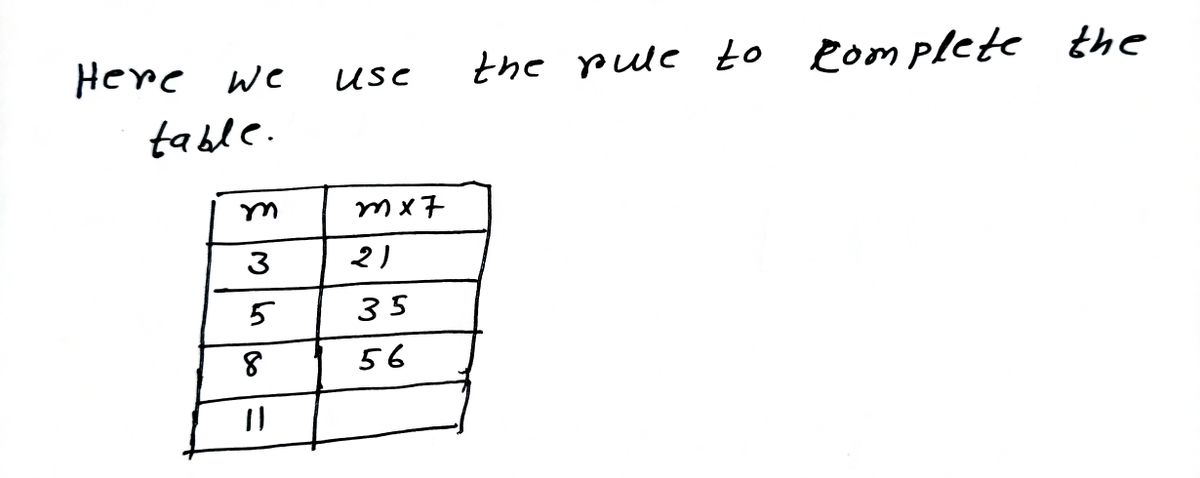 Here we use the rule to complete the
table.
m m×7
3 21
5 35
8 56
11